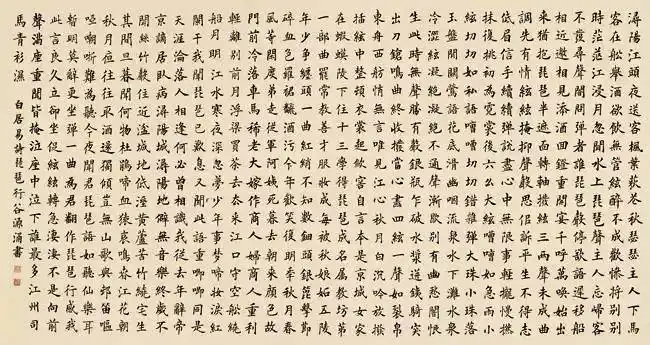 潯陽江頭夜送客楓葉荻花秋瑟瑟主人下馬
客在船舉酒欲飲無管絃醉不成歡慘將別別
時茫茫江浸月忽聞水上琵琶聲主人忘歸客
不發尋聲闇問彈者誰琵琶聲停欲語遲移船
相近邀相見添酒回燈重開宴千呼萬喚始出
來猶抱琵琶半遮面轉軸撥絃三兩聲未成曲
調先有情絃絃掩抑聲聲思似訴平生不得志
低眉信手續續彈說盡心中無限事輕攏慢撚
抹復挑初為霓裳後六么大絃嘈嘈如急雨小
絃切切如私語嘈嘈切切錯雜彈大珠小珠落
玉盤間關鶯語花底滑幽咽泉流水下灘水泉
冷澀絃凝絕凝絕不通聲漸歇別有幽愁闇恨
生此時無聲勝有聲銀瓶乍破水漿迸鐵騎突
出刀鎗鳴曲終收撥當心畫四絃一聲如裂帛
東舟西舫悄無言唯見江心秋月白沉吟放撥
插絃中整頓衣裳起斂容自言本是京城女家
在蝦蟆陵下住十三學得琵琶成名屬教坊第
一部曲罷常教善才服妝成每被秋娘妬五陵
年少爭纏頭一曲紅綃不知數鈿頭銀篦擊節
碎血色羅裙翻酒污今年歡笑復明年秋月春
風等閒度弟走從軍阿姨死暮去朝來顏色故
門前冷落車馬稀老大嫁作商人婦商人重利
輕離別前月浮梁買茶去去來江口守空船繞
船月明江水寒夜深忽夢少年事夢啼妝淚紅
闌干我聞琵琶已歎息又聞此語重唧唧同是
天涯淪落人相逢何必曾相識我從去年辭帝
京謫居臥病潯陽城潯陽地僻無音樂終歲不
聞絲竹聲住近湓城地低濕黃蘆苦竹繞宅生
其間旦暮聞何物杜鵑啼血猿哀鳴春江花朝
秋月夜往往取酒還獨傾豈無山歌與村笛嘔
啞嘲哳難為聽今夜聞君琵琶語如聽仙樂耳
暫明莫辭更坐彈一曲為君翻作琵琶行感我
此言良久立卻坐促絃絃轉急淒淒不是向前
聲滿座重聞皆掩泣座中泣下誰最多江州司
馬青衫濕 白居易詩琵琶行 谷源涌書